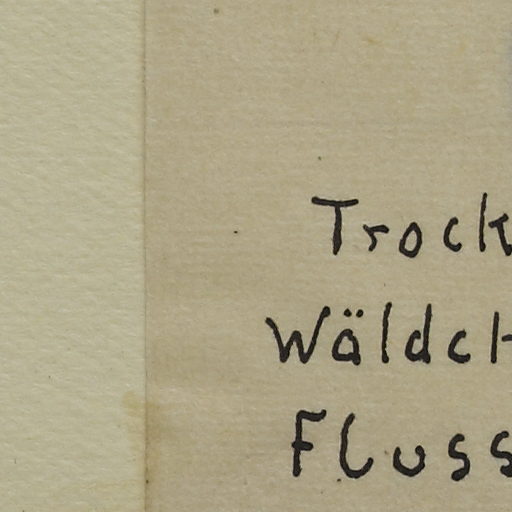 Trock
Wäldch
Fluss